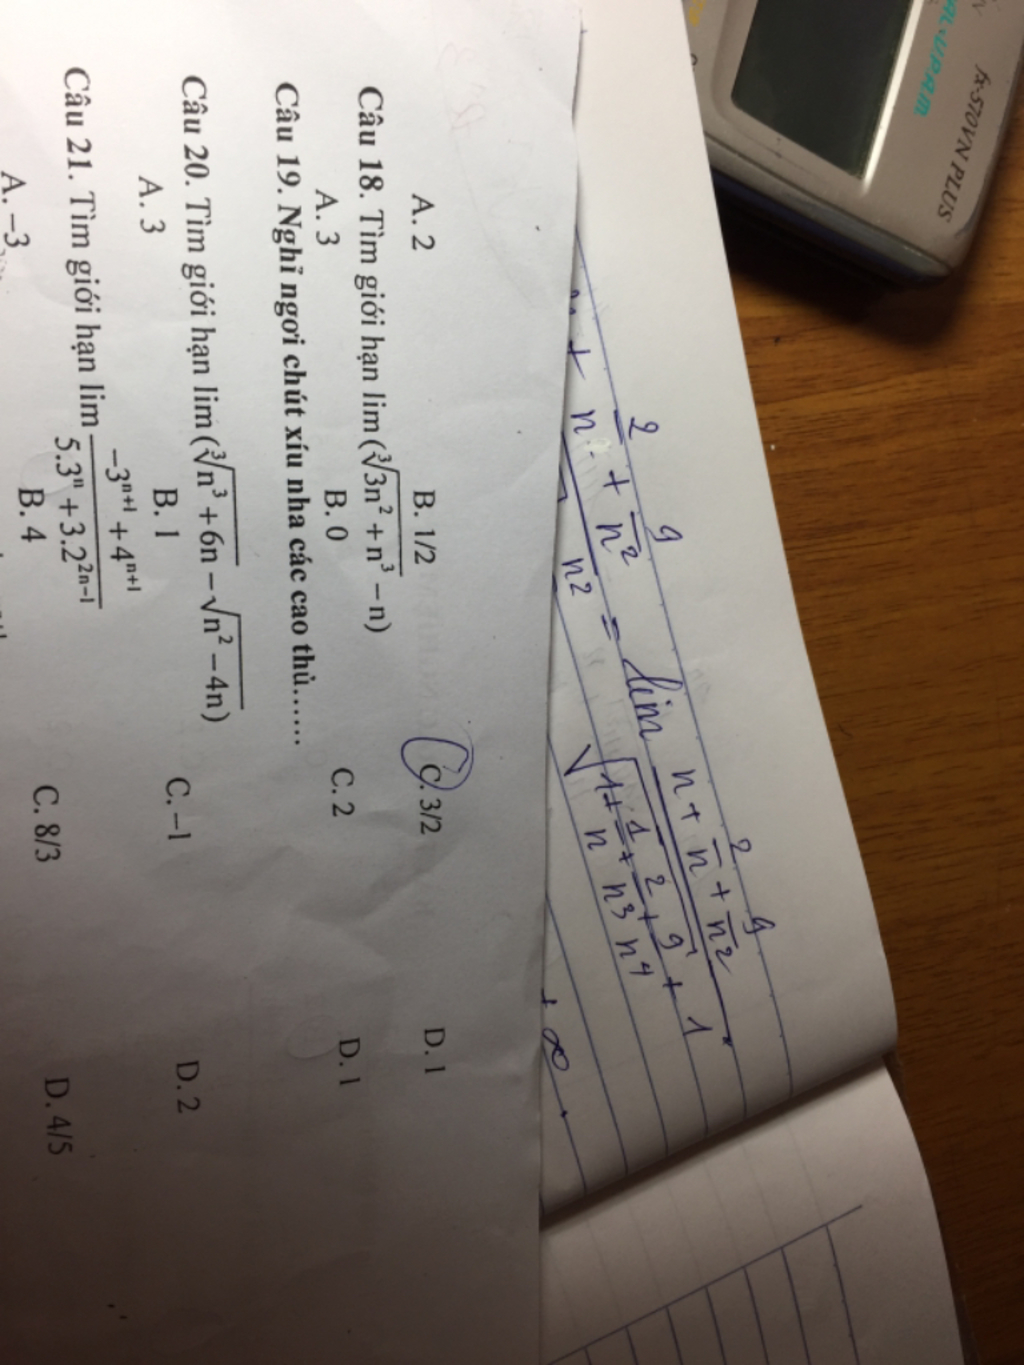 fx-570VN PLUS
A. 2 B. 1/2 C. 3/2 D. 1
Câu 18. Tìm giới hạn lim(∛(3n² + n³) − n)
A. 3 B. 0 C. 2 D. 1
Câu 19. Nghĩ ngơi chút xíu nha các cao thủ......
Câu 20. Tìm giới hạn lim(∛(n³ + 6n) − √(n² − 4n))
A. 3 B. 1 C. −1 D. 2
Câu 21. Tìm giới hạn lim (−3ⁿ⁺¹ + 4ⁿ⁺¹)/(5.3ⁿ + 3.2²ⁿ⁻¹)
A. −3 B. 4 C. 8/3 D. 4/5
= lim (n + 2/n + 9/n²)/(√(1 + 1/n + 2/n³ + 9/n⁴) + 1)
+ ∞.